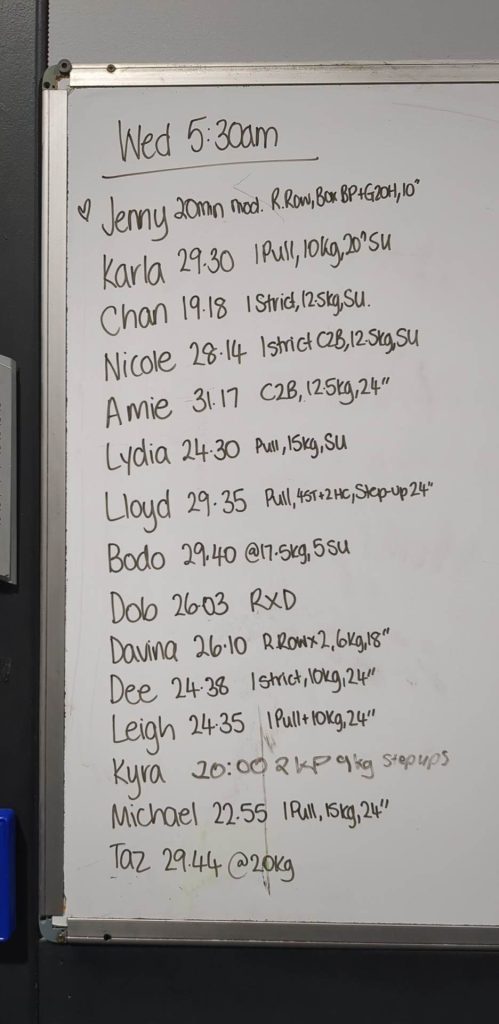 Wed 5:30am
♡ Jenny 20min mod. R.Row, Box BP+G2OH, 10"
Karla 29.30 1 Pull, 10kg, 20" SU
Chan 19.18 1 Strict, 12.5kg, SU.
Nicole 28.14 1 strict C2B, 12.5kg, SU
Amie 31.17 C2B, 12.5kg, 24"
Lydia 24.30 Pull, 15kg, SU
Lloyd 29.35 Pull, 4ST+2HC, Step-up 24"
Bodo 29.40 @17.5kg, 5 SU
Dob 26.03 RXD
Davina 26.10 R.Row x 2, 6kg, 18"
Dee 24.38 1 strict, 10kg, 24"
Leigh 24.35 1 Pull + 10kg, 24"
Kyra 20:00 2 KP 9kg Step ups
Michael 22.55 1 Pull, 15kg, 24"
Taz 29.44 @20kg